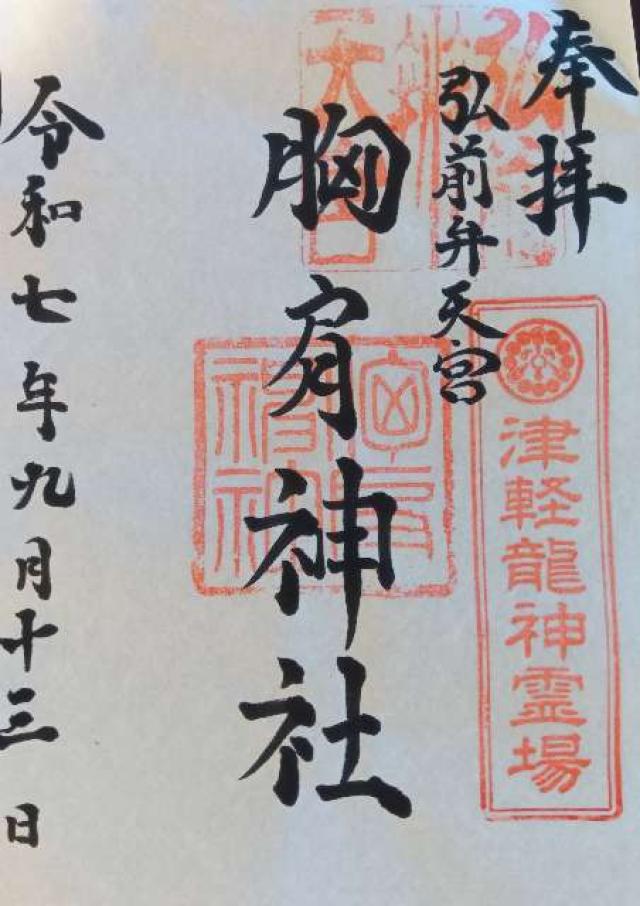 奉拝
弘前弁天宮
津軽龍神霊場
胸肩神社
令和七年九月十三日